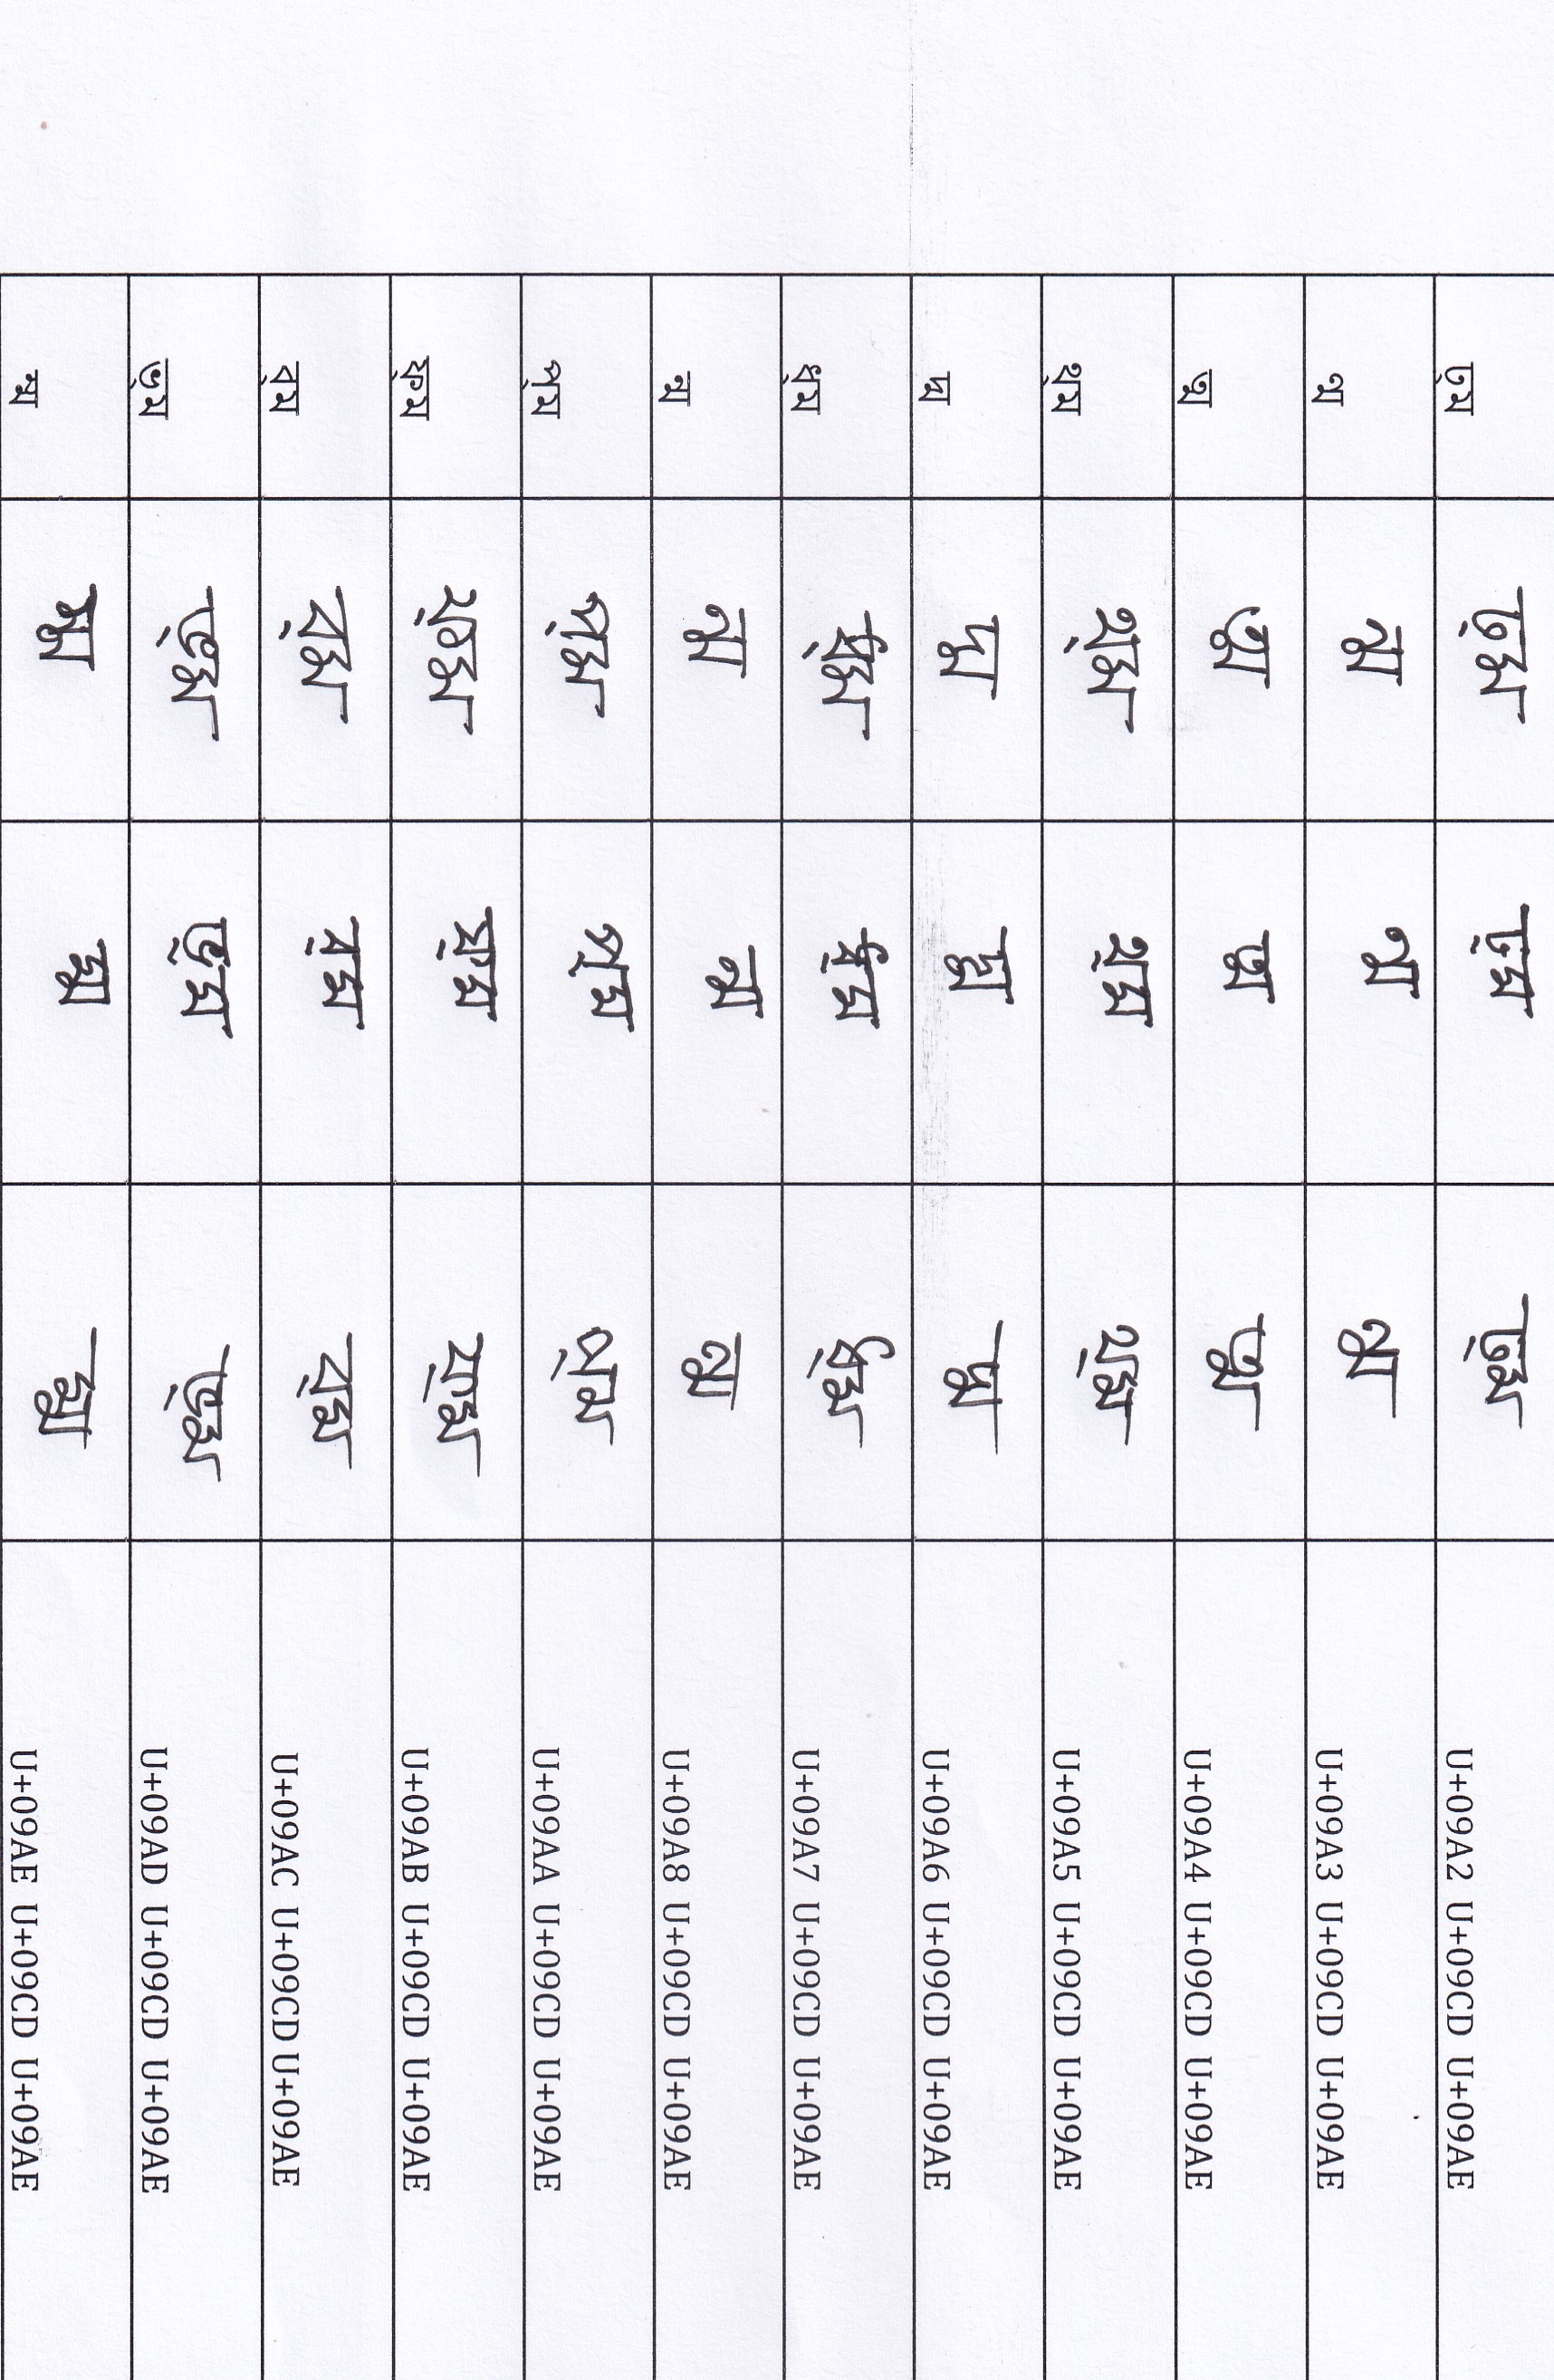 ঢ্ম ঢ্ম ঢ্ম ঢ্ম U+09A2 U+09CD U+09AE
ণ্ম ন্ম ণ্ম ন্ম U+09A3 U+09CD U+09AE
ত্ম ত্ম ত্ম ত্ম U+09A4 U+09CD U+09AE
থ্ম থ্ম থ্ম থ্ম U+09A5 U+09CD U+09AE
দ্ম দ্ম দ্ম দ্ম U+09A6 U+09CD U+09AE
ধ্ম ধ্ম ধ্ম ধ্ম U+09A7 U+09CD U+09AE
ন্ম ন্ম ন্ম ন্ম U+09A8 U+09CD U+09AE
প্ম প্ম প্ম প্ম U+09AA U+09CD U+09AE
ফ্ম ফ্ম ফ্ম ফ্ম U+09AB U+09CD U+09AE
ব্ম ব্ম ব্ম ব্ম U+09AC U+09CD U+09AE
ভ্ম ভ্ম ভ্ম ভ্ম U+09AD U+09CD U+09AE
ম্ম ম্ম ম্ম ম্ম U+09AE U+09CD U+09AE